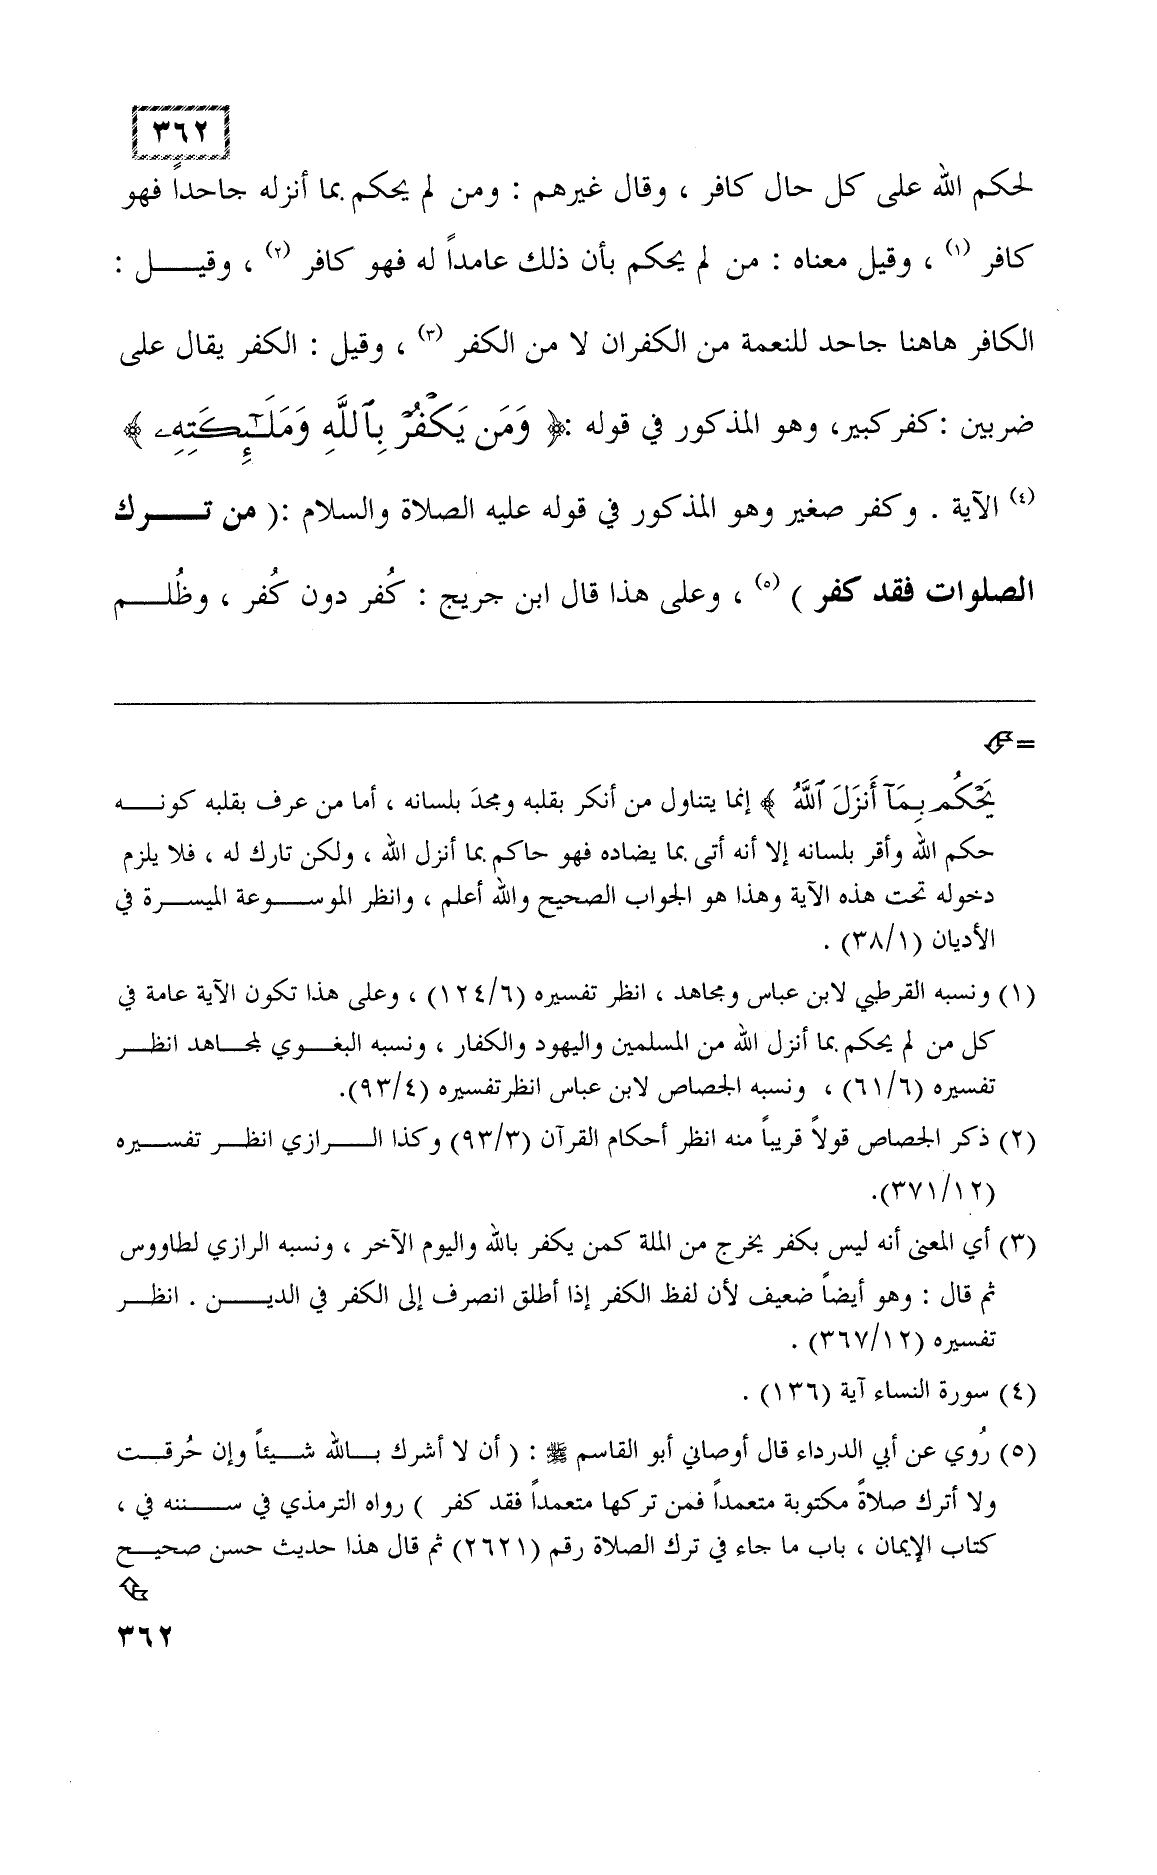 ٣٦٢
لحكم الله على كل حال كافر ، وقال غيرهم : ومن لم يحكم بما أنزله جاحداً فهو
كافر (١) ، وقيل معناه : من لم يحكم بأن ذلك عامداً له فهو كافر (٢) ، وقيــل :
الكافر هاهنا جاحد للنعمة من الكفران لا من الكفر (٣) ، وقيل : الكفر يقال على
ضربين :كفر كبير، وهو المذكور في قوله :﴿ وَمَن يَكْفُرْ بِٱللَّهِ وَمَلَـٰٓئِكَتِهِۦ ﴾
(٤) الآية . وكفر صغير وهو المذكور في قوله عليه الصلاة والسلام :( من تــرك
الصلوات فقد كفر ) (٥) ، وعلى هذا قال ابن جريج : كُفر دون كُفر ، وظُلــم
=
يَحْكُم بِمَآ أَنزَلَ ٱللَّهُ ﴾ إنما يتناول من أنكر بقلبه وجحدَ بلسانه ، أما من عرف بقلبه كونــه
حكم الله وأقر بلسانه إلا أنه أتى بما يضاده فهو حاكم بما أنزل الله ، ولكن تارك له ، فلا يلزم
دخوله تحت هذه الآية وهذا هو الجواب الصحيح والله أعلم ، وانظر الموســوعة الميســرة في
الأديان (٣٨/١) .
(١) ونسبه القرطبي لابن عباس ومجاهد ، انظر تفسيره (١٢٤/٦) ، وعلى هذا تكون الآية عامة في
كل من لم يحكم بما أنزل الله من المسلمين واليهود والكفار ، ونسبه البغــوي لمجــاهد انظــر
تفسيره (٦١/٦) ، ونسبه الجصاص لابن عباس انظرتفسيره (٩٣/٤).
(٢) ذكر الجصاص قولاً قريباً منه انظر أحكام القرآن (٩٣/٣) وكذا الــرازي انظــر تفســيره
(٣٧١/١٢).
(٣) أي المعنى أنه ليس بكفر يخرج من الملة كمن يكفر بالله واليوم الآخر ، ونسبه الرازي لطاووس
ثم قال : وهو أيضاً ضعيف لأن لفظ الكفر إذا أطلق انصرف إلى الكفر في الديــن . انظــر
تفسيره (٣٦٧/١٢) .
(٤) سورة النساء آية (١٣٦) .
(٥) رُوي عن أبي الدرداء قال أوصاني أبو القاسم ﷺ : ( أن لا أشرك بــالله شــيئاً وإن حُرقــت
ولا أترك صلاةً مكتوبة متعمداً فمن تركها متعمداً فقد كفر ) رواه الترمذي في ســننه في ،
كتاب الإيمان ، باب ما جاء في ترك الصلاة رقم (٢٦٢١) ثم قال هذا حديث حسن صحيــح
٣٦٢